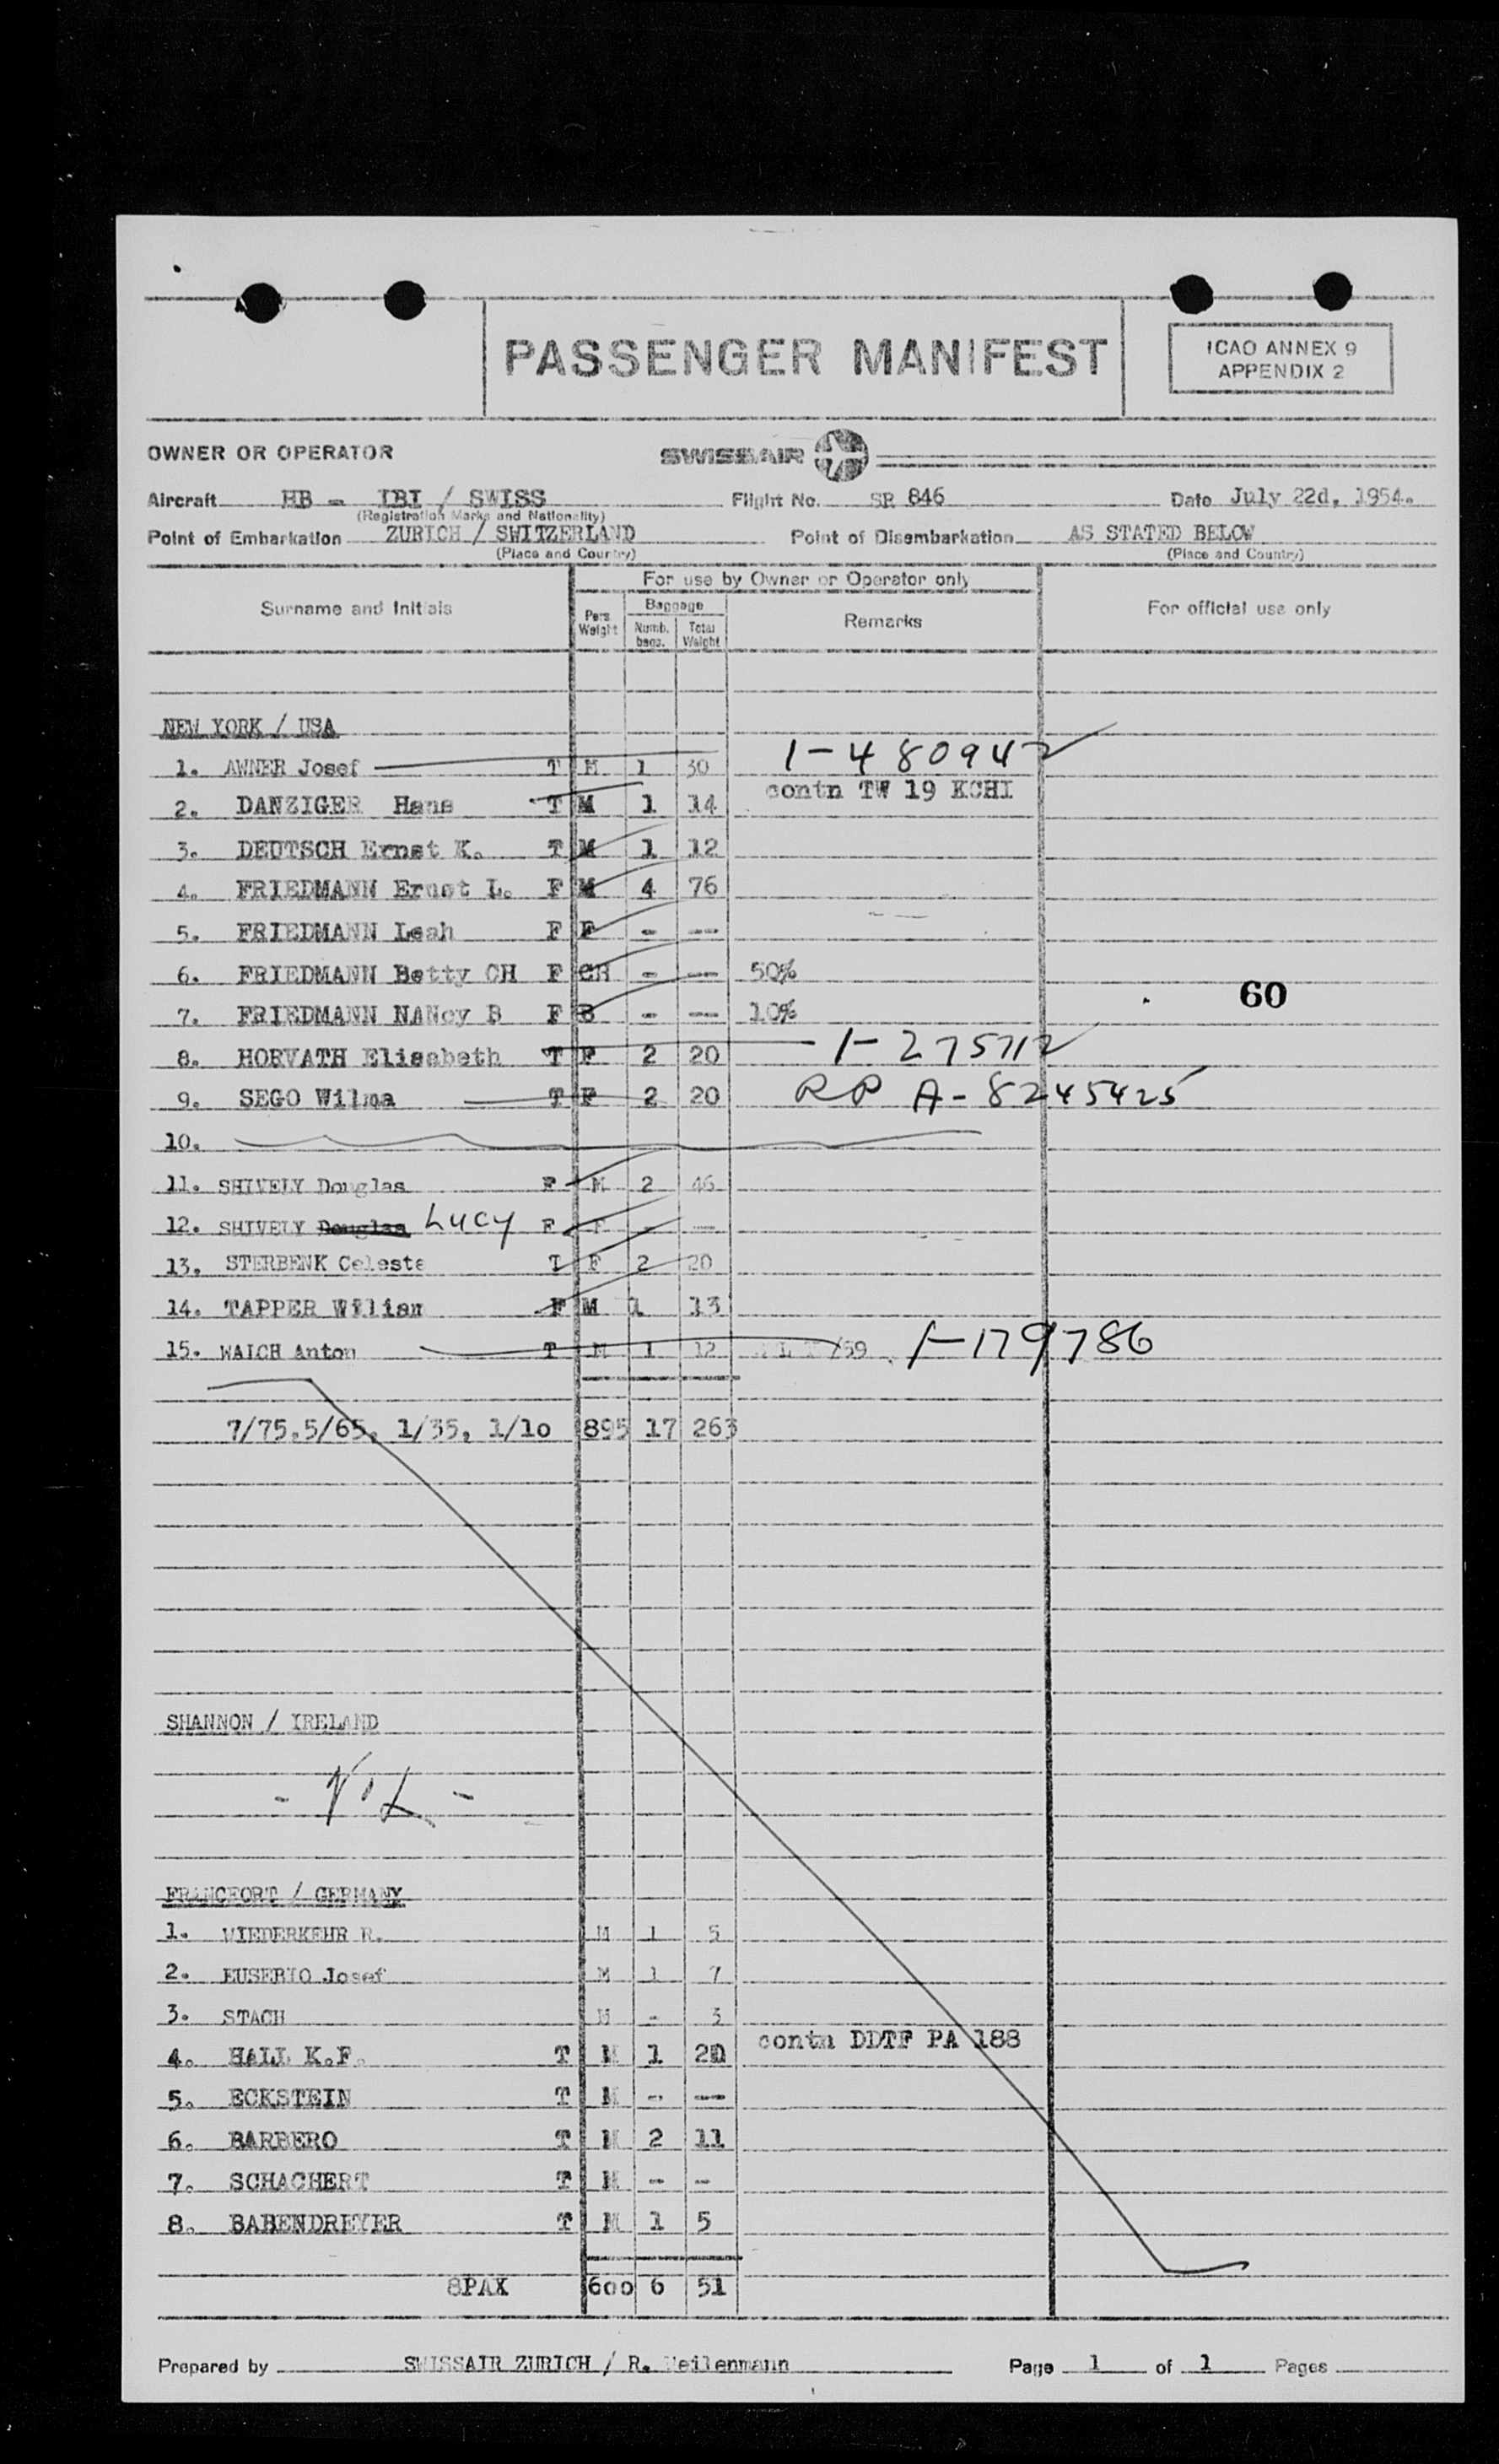 PASSENGER MANIFEST
ICAO ANNEX 9
APPENDIX 2
OWNER OR OPERATOR SWISSAIR
Aircraft HB - IBI / SWISS Flight No. SR 846 Date July 22d, 1954.
(Registration Marks and Nationality)
Point of Embarkation ZURICH / SWITZERLAND Point of Disembarkation AS STATED BELOW
(Place and Country) (Place and Country)
For use by Owner or Operator only
Surname and Initials Pers. Weight Baggage Numb. bags. Total Weight Remarks For official use only
NEW YORK / USA
1. AWNER Josef T M 1 30 1-480942
2. DANZIGER Hans T M 1 14 contn TW 19 KCHI
3. DEUTSCH Ernst K. T M 1 12
4. FRIEDMANN Ernst L. F M 4 76
5. FRIEDMANN Leah F F - --
6. FRIEDMANN Betty CH F CH - -- 50%
7. FRIEDMANN NANcy B F B - -- 10%
60
8. HORVATH Elisabeth T F 2 20 1-275712
9. SEGO Wilma T F 2 20 RP A-8245425
10.
11. SHIVELY Douglas F M 2 46
12. SHIVELY Douglas Lucy F F - --
13. STERBENK Celeste T F 2 20
14. TAPPER Wiliam F M 1 13
15. WAICH Anton T M 1 12 /59 1-179786
7/75.5/65, 1/35, 1/10 895 17 263
SHANNON / IRELAND
- NIL -
FRANCFORT / GERMANY
1. WIEDERKEHR R. M 1 5
2. EUSEBIO Josef M 1 7
3. STACH M - 3
4. HALL K.F. T M 1 20 contn DDTF PA 188
5. ECKSTEIN T M - --
6. BARBERO T M 2 11
7. SCHACHERT T M - -
8. BABENDREYER T M 1 5
8PAX 600 6 51
Prepared by SWISSAIR ZURICH / R. Weilenmann Page 1 of 1 Pages